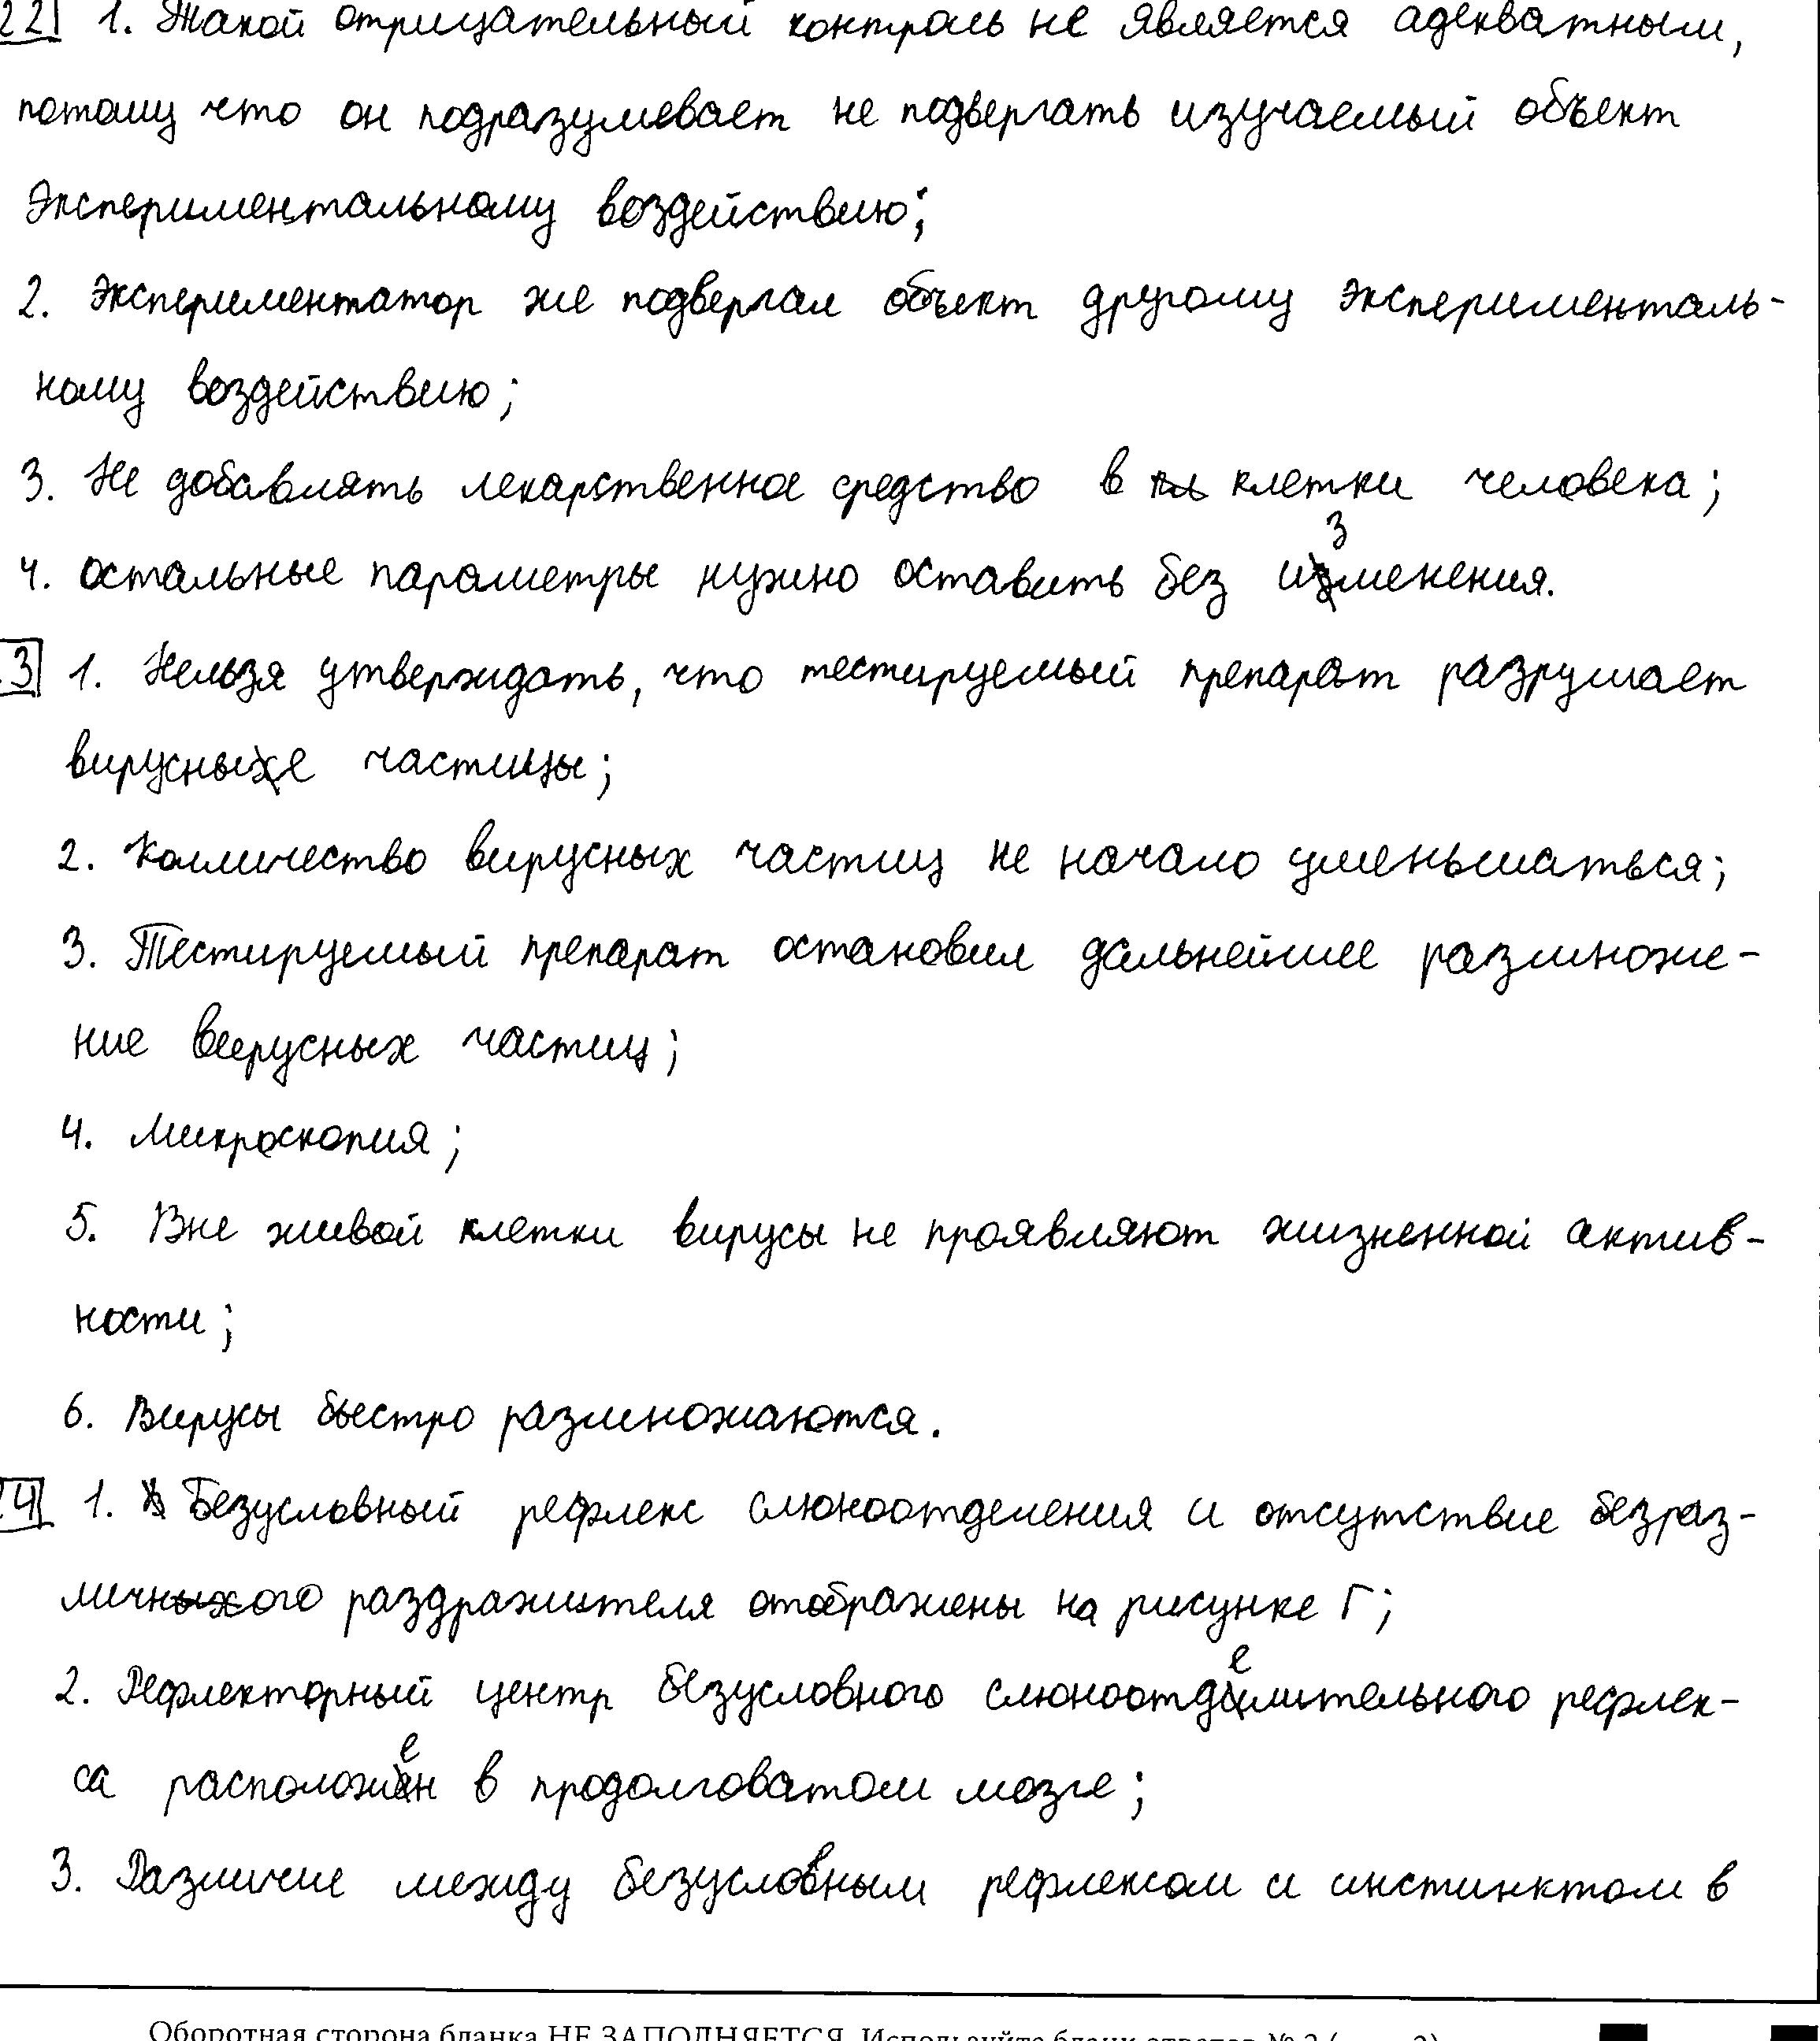 22 1. Такой отрицательный контроль не является адекватным,
потому что он подразумевает не подвергать изучаемый объект
экспериментальному воздействию;
2. Экспериментатор же подвергал объект другому эксперименталь-
ному воздействию;
3. Не добавлять лекарственное средство в кл клетки человека;
4. Остальные параметры нужно оставить без изменения.
3 1. Нельзя утверждать, что тестируемый препарат разрушает
вирусные частицы;
2. Колличество вирусных частиц не начало уменьшаться;
3. Тестируемый препарат остановил дальнейшее размноже-
ние вирусных частиц;
4. Микроскопия;
5. Вне живой клетки вирусы не проявляют жизненной актив-
ности;
6. Вирусы быстро размножаются.
24 1. Безусловный рефлекс слюноотделения и отсутствие безраз-
личного раздражителя отображены на рисунке Г;
2. Рефлекторный центр безусловного слюноотделительного рефлек-
са расположен в продолговатом мозге;
3. Различие между безусловным рефлексом и инстинктом в
Оборотная сторона бланка НЕ ЗАПОЛНЯЕТСЯ. Используйте бланк ответов № 2 (